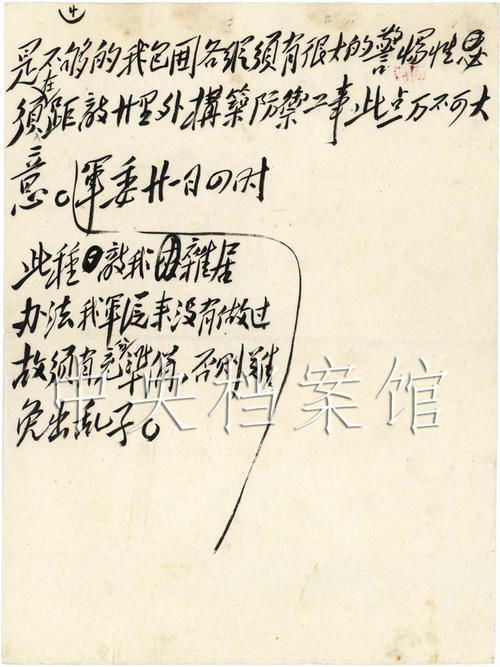 4
是不够的我包围各纵须有很大的警惕性
须在距敌廿里外構築防禦工事,此点万不可大
意。軍委廿一日四时
此種敌我雜居
办法我軍從来没有做过
故须有充分準俻,否则難
免出乱子。
中央档案馆